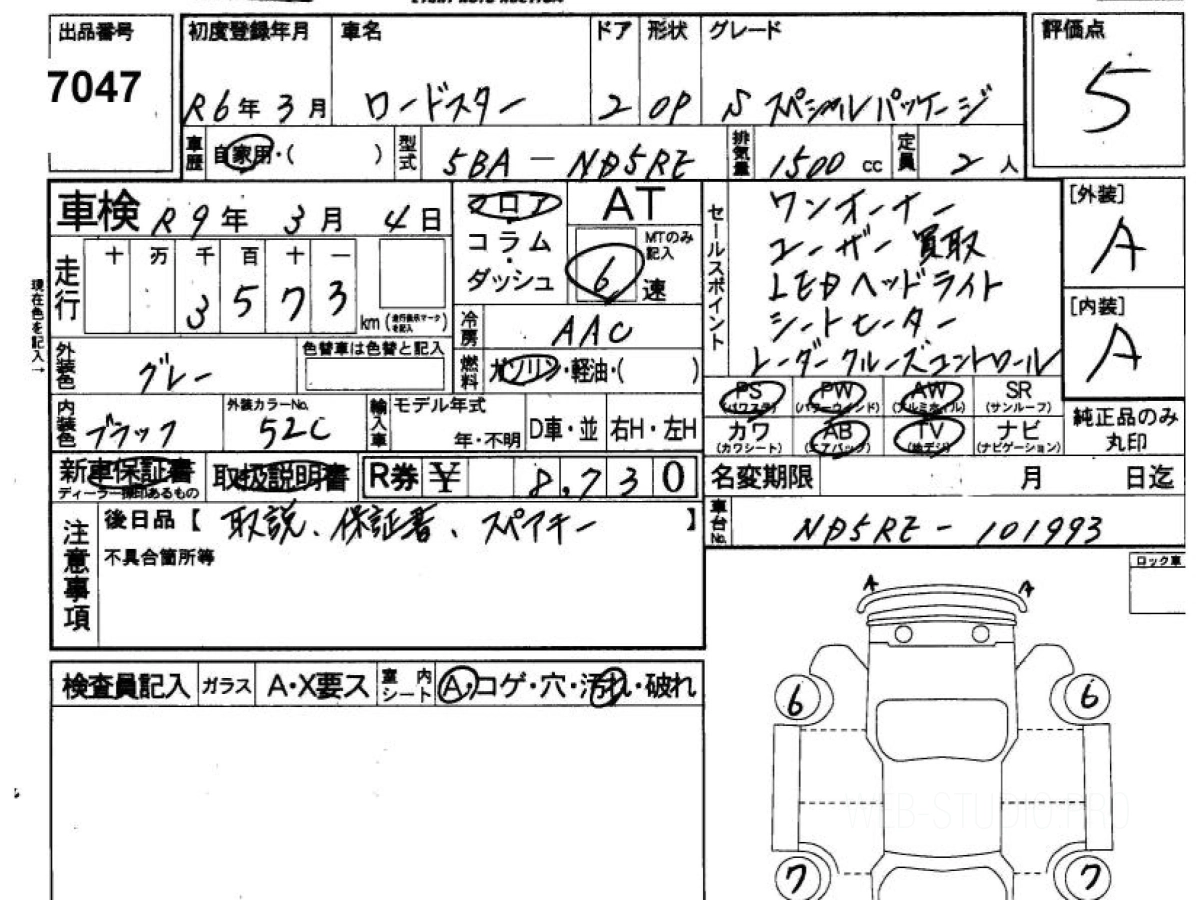 出品番号
7047
初度登録年月 車名 ドア 形状 グレード 評価点
R6年3月 ロードスター 2 OP S スペシャルパッケージ 5
車歴 自家用・( ) 型式 5BA-ND5RE 排気量 1500cc 定員 2人
車検 R9年 3月 4日
走行 十 万 千 百 十 一
3 5 7 3 km (走行表示マークを記入)
現在色を記入→
フロア・コラム・ダッシュ
AT
MTのみ記入
6 速
冷房 AAC
燃料 ガソリン・軽油・( )
セールスポイント
ワンオーナー
ユーザー買取
LEDヘッドライト
シートヒーター
レーダークルーズコントロール
[外装]
A
[内装]
A
外装色 グレー 色替車は色替と記入
内装色 ブラック 外装カラーNo. 52C 輸入車 モデル年式 年・不明 D車・並 右H・左H
PS (パワステ) PW (パワーウインド) AW (アルミホイル) SR (サンルーフ)
カワ (カワシート) AB (エアバッグ) TV (地デジ) ナビ (ナビゲーション)
純正品のみ
丸印
新車保証書
ディーラー捺印あるもの
取扱説明書 R券 ¥ 8,730
名変期限 月 日迄
車台No. ND5RE-101993
注意事項
後日品【 取説、保証書、スペアキー 】
不具合箇所等
ロック車
A A
検査員記入 ガラス A・X要ス 室内シート A・コゲ・穴・汚れ・破れ
6 6
WEB-STUDIO.PRO
7 7